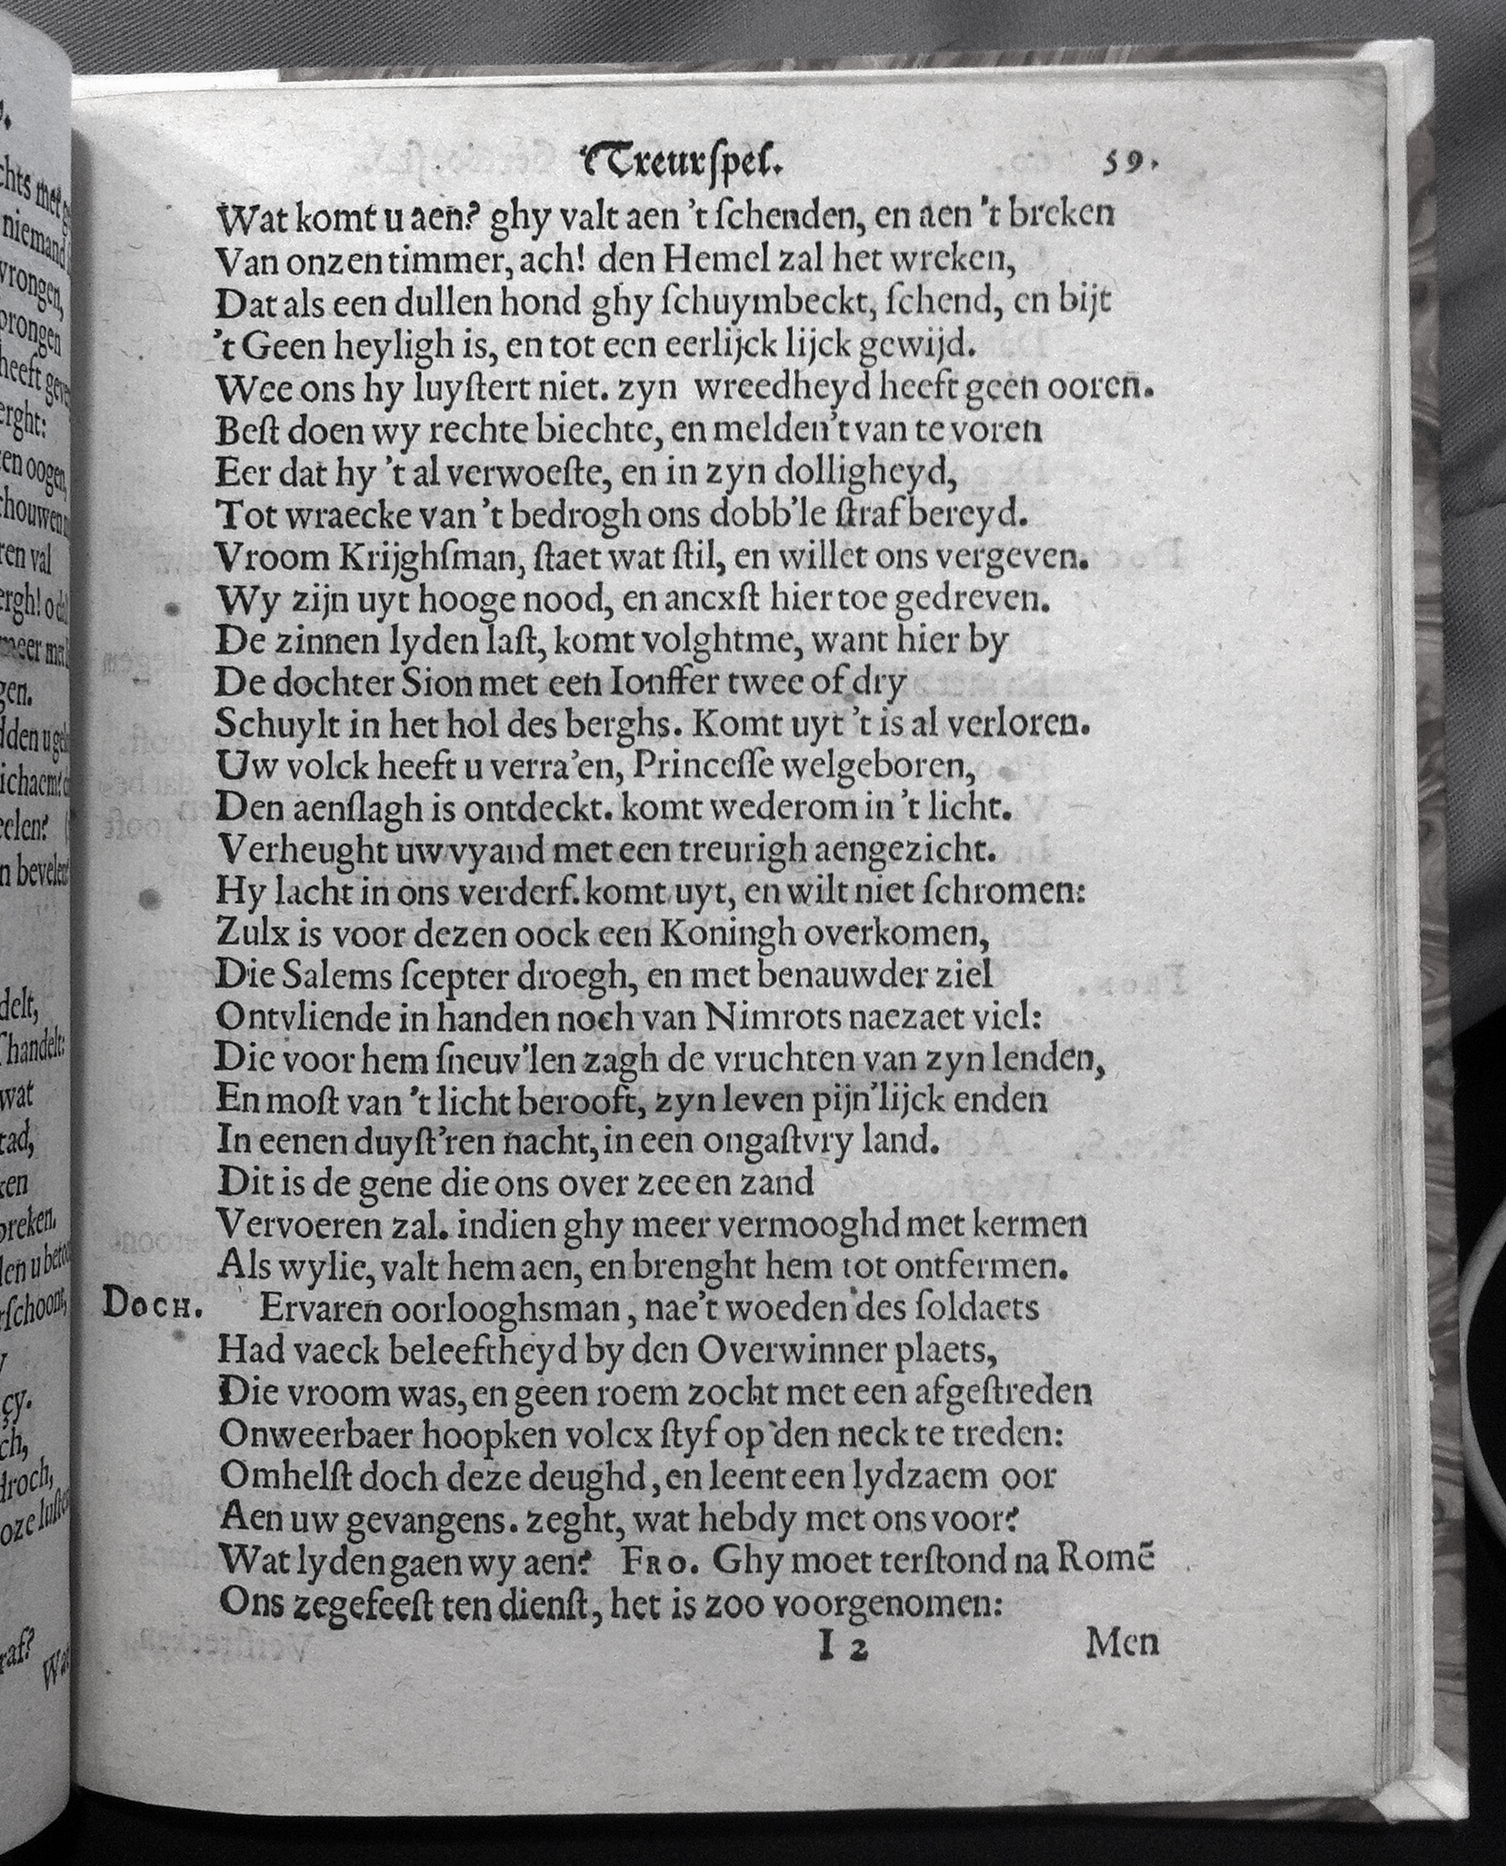 'tTreurſpel. 59.
Wat komt u aen? ghy valt aen 't ſchenden, en aen 't breken
Van onzen timmer, ach! den Hemel zal het wreken,
Dat als een dullen hond ghy ſchuymbeckt, ſchend, en bijt
't Geen heyligh is, en tot een eerlijck lijck gewijd.
Wee ons hy luyſtert niet. zyn wreedheyd heeft geen ooren.
Beſt doen wy rechte biechte, en melden't van te voren
Eer dat hy 't al verwoeſte, en in zyn dolligheyd,
Tot wraecke van 't bedrogh ons dobb'le ſtraf bereyd.
Vroom Krijghſman, ſtaet wat ſtil, en willet ons vergeven.
Wy zijn uyt hooge nood, en ancxſt hier toe gedreven.
De zinnen lyden laſt, komt volghtme, want hier by
De dochter Sion met een Ionffer twee of dry
Schuylt in het hol des berghs. Komt uyt 't is al verloren.
Uw volck heeft u verra'en, Princeſſe welgeboren,
Den aenſlagh is ontdeckt. komt wederom in 't licht.
Verheught uw vyand met een treurigh aengezicht.
Hy lacht in ons verderf. komt uyt, en wilt niet ſchromen:
Zulx is voor dezen oock een Koningh overkomen,
Die Salems ſcepter droegh, en met benauwder ziel
Ontvliende in handen noch van Nimrots naezaet viel:
Die voor hem ſneuv'len zagh de vruchten van zyn lenden,
En moſt van 't licht berooft, zyn leven pijn'lijck enden
In eenen duyſt'ren nacht, in een ongaſtvry land.
Dit is de gene die ons over zee en zand
Vervoeren zal. indien ghy meer vermooghd met kermen
Als wylie, valt hem aen, en brenght hem tot ontfermen.
DOCH. Ervaren oorlooghsman, nae't woeden des ſoldaets
Had vaeck beleeftheyd by den Overwinner plaets,
Die vroom was, en geen roem zocht met een afgeſtreden
Onweerbaer hoopken volcx ſtyf op den neck te treden:
Omhelſt doch deze deughd, en leent een lydzaem oor
Aen uw gevangens. zeght, wat hebdy met ons voor?
Wat lyden gaen wy aen? FRO. Ghy moet terſtond na Romē
Ons zegefeeſt ten dienſt, het is zoo voorgenomen:
I 2 Men